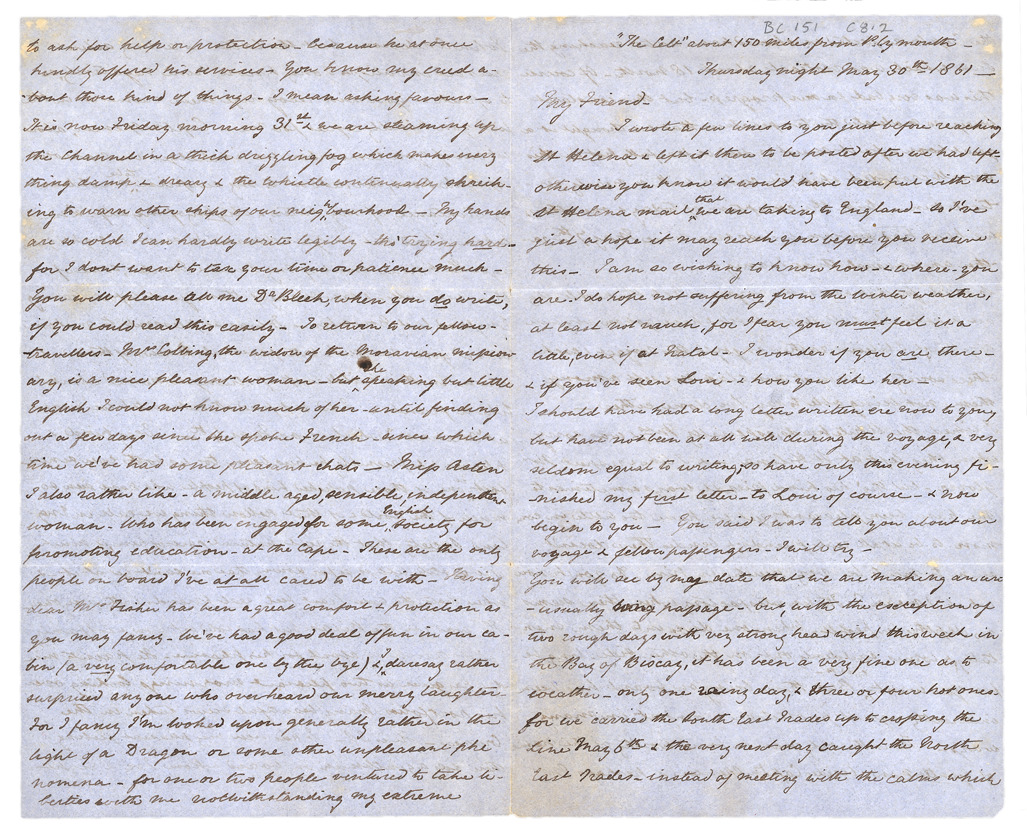 BC 151 C8.2
"The Celt" about 150 miles from Plymouth -
Thursday night May 30th 1861 -
My Friend -
I wrote a few lines to you just before reaching
St Helena & left it there to be posted after we had left -
otherwise you know it would have been put with the
St Helena mail that we are taking to England - so I've
just a hope it may reach you before you receive
this - I am so wishing to know how - & where - you
are. I do hope not suffering from the winter weather,
at least not much, for I fear you must feel it a
little, even if at Natal - I wonder if you are there -
& if you've seen Loui - & how you like her -
I should have had a long letter written ere now to you,
but have not been at all well during the voyage, & very
seldom equal to writing, so have only this evening fi-
-nished my first letter - to Loui of course - & now
begin to you - You said I was to tell you about our
voyage & fellow passengers - I will try -
You will see by my date that we are making an un-
-usually long passage - but, with the exception of
two rough days with very strong head wind this week in
the Bay of Biscay, it has been a very fine one as to
weather - only one rainy day, & three or four hot ones -
for we carried the South East Trades up to crossing the
Line May 6th & the very next day caught the North
East Trades - instead of meeting with the calms which
to ask for help or protection - because he at once
kindly offered his services - You know my creed a-
-bout those kind of things - I mean asking favours -
It is now Friday morning 31st & we are steaming up
the Channel in a thick drizzling fog which makes every
thing damp & dreary & the whistle continually shriek-
ing to warn other ships of our neighbourhood - My hands
are so cold I can hardly write legibly - tho' trying hard -
for I dont want to tax your time or patience much -
You will please tell me Dr Bleek, when you do write,
if you could read this easily - To return to our fellow-
-travellers - Mrs Colbing, the widow of the Moravian mission-
ary, is a nice pleasant woman - but she speaking but little
English I could not know much of her - until finding
out a few days since she spoke French - since which
time we've had some pleasant chats - Miss Asten
I also rather like - a middle aged, sensible, independent
woman - Who has been engaged for some English Society for
promoting education - at the Cape - These are the only
people on board I've at all cared to be with - Having
dear Mrs Fisher has been a great comfort & protection as
you may fancy - We've had a good deal of fun in our ca-
bin (a very comfortable one by the bye) & I daresay rather
surprised anyone who overheard our merry laughter -
For I fancy I'm looked upon generally rather in the
light of a Dragon or some other unpleasant phe
nomena - for one or two people ventured to take li-
berties with me notwithstanding my extreme